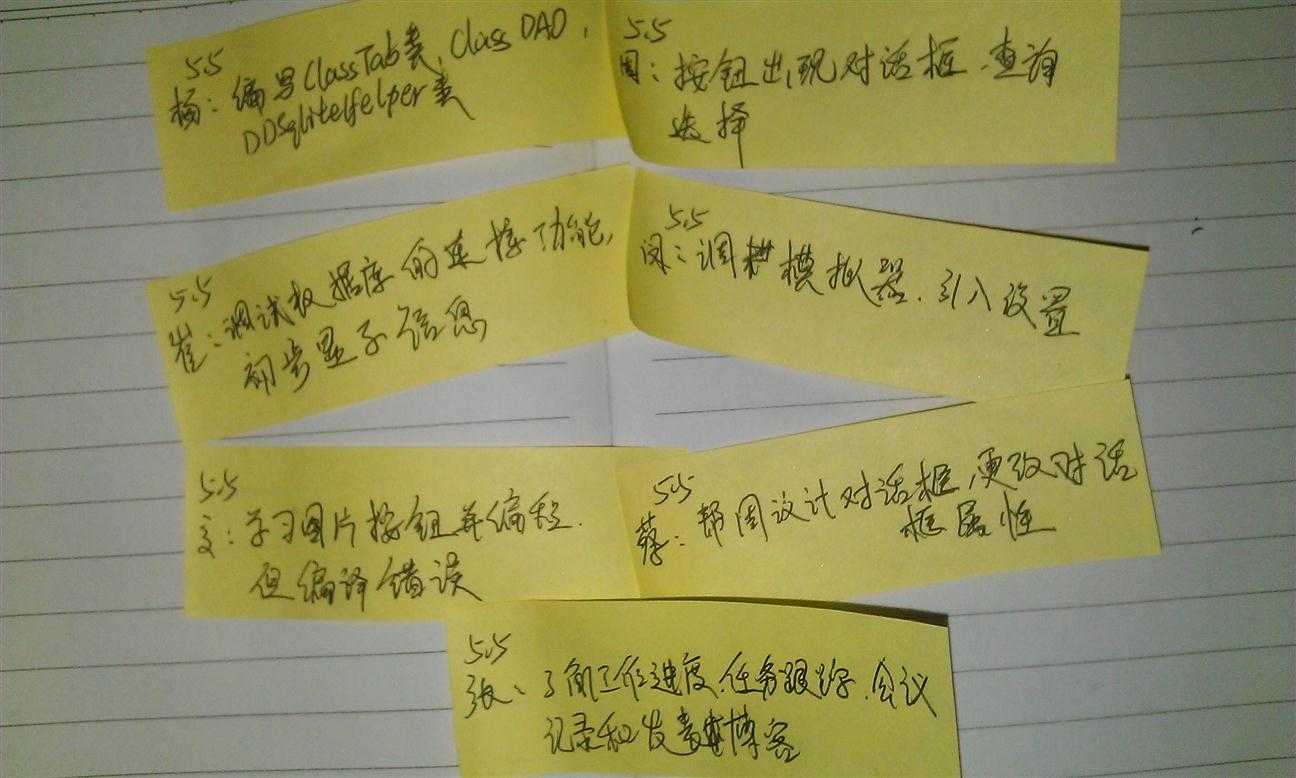 5.5
杨：编写ClassTab类，ClassDAO，
DDSqliteHelper类
5.5
周：按钮出现对话框，查询
选择
5.5
崔：调试数据库的连接功能，
初步显示信息
5.5
闵：调模拟器，引入设置
5.5
文：学习图片按钮并编程.
但编译错误
5.5
蔡：帮周设计对话框，更改对话
框属性
5.5
张：了解工作进度，任务跟踪，会议
记录和发表博客